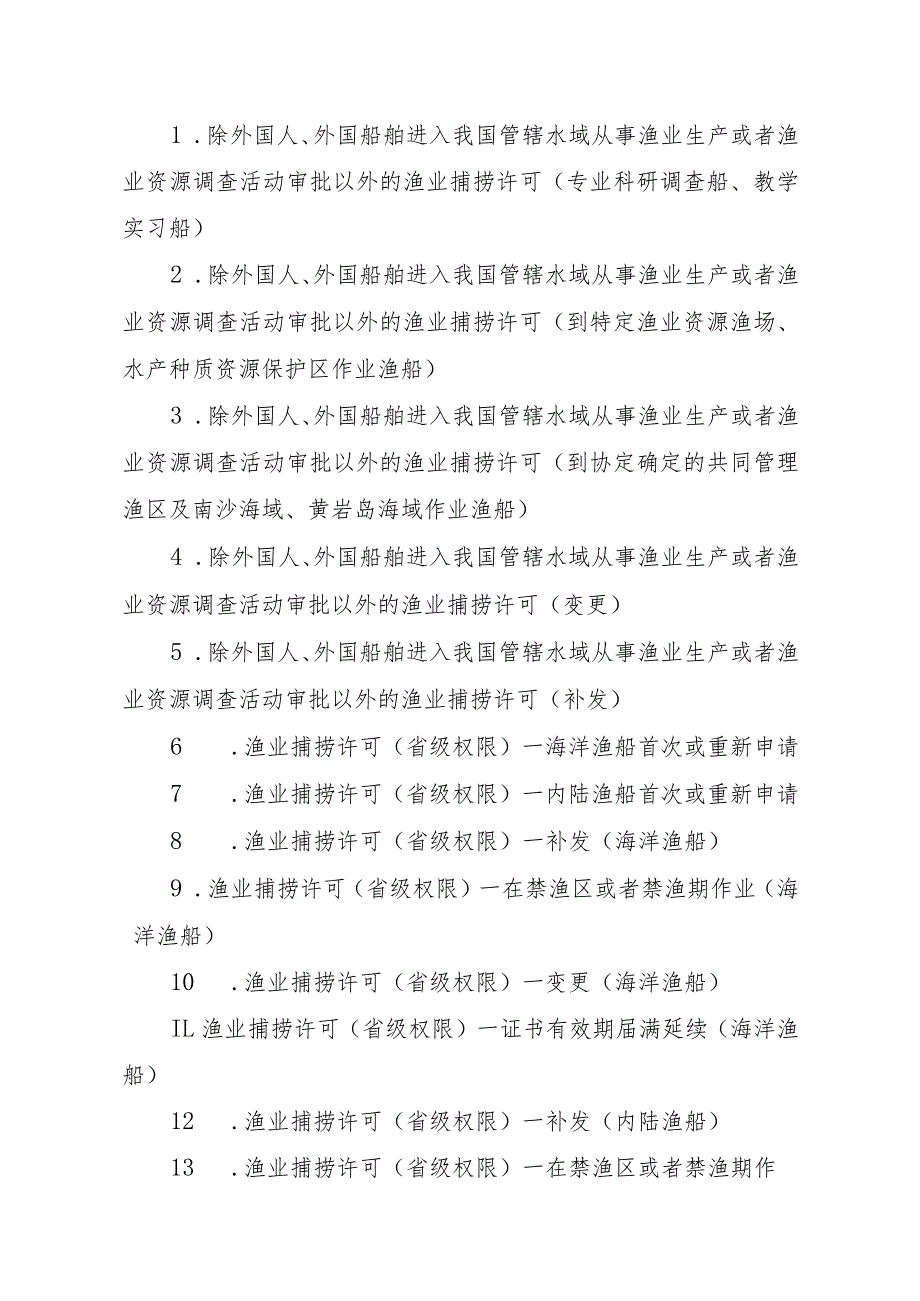 1 .除外国人、外国船舶进入我国管辖水域从事渔业生产或者渔
业资源调查活动审批以外的渔业捕捞许可（专业科研调查船、教学
实习船）
2 .除外国人、外国船舶进入我国管辖水域从事渔业生产或者渔
业资源调查活动审批以外的渔业捕捞许可（到特定渔业资源渔场、
水产种质资源保护区作业渔船）
3 .除外国人、外国船舶进入我国管辖水域从事渔业生产或者渔
业资源调查活动审批以外的渔业捕捞许可（到协定确定的共同管理
渔区及南沙海域、黄岩岛海域作业渔船）
4 .除外国人、外国船舶进入我国管辖水域从事渔业生产或者渔
业资源调查活动审批以外的渔业捕捞许可（变更）
5 .除外国人、外国船舶进入我国管辖水域从事渔业生产或者渔
业资源调查活动审批以外的渔业捕捞许可（补发）
6 .渔业捕捞许可（省级权限）一海洋渔船首次或重新申请
7 .渔业捕捞许可（省级权限）一内陆渔船首次或重新申请
8 .渔业捕捞许可（省级权限）一补发（海洋渔船）
9 .渔业捕捞许可（省级权限）一在禁渔区或者禁渔期作业（海
洋渔船）
10 .渔业捕捞许可（省级权限）一变更（海洋渔船）
IL 渔业捕捞许可（省级权限）一证书有效期届满延续（海洋渔
船）
12 .渔业捕捞许可（省级权限）一补发（内陆渔船）
13 .渔业捕捞许可（省级权限）一在禁渔区或者禁渔期作